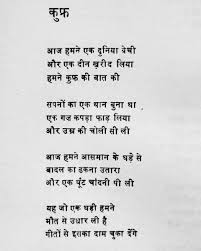 कुफ़्र
आज हमने एक दुनिया बेची
और एक दीन ख़रीद लिया
हमने कुफ़्र की बात की
सपनों का एक थान बुना था
एक गज़ कपड़ा फाड़ लिया
और उम्र की चोली सी ली
आज हमने आसमान के घड़े से
बादल का ढकना उतारा
और एक घूँट चांदनी पी ली
यह जो एक घड़ी हमने
मौत से उधार ली है
गीतों से इसका दाम चुका देंगे